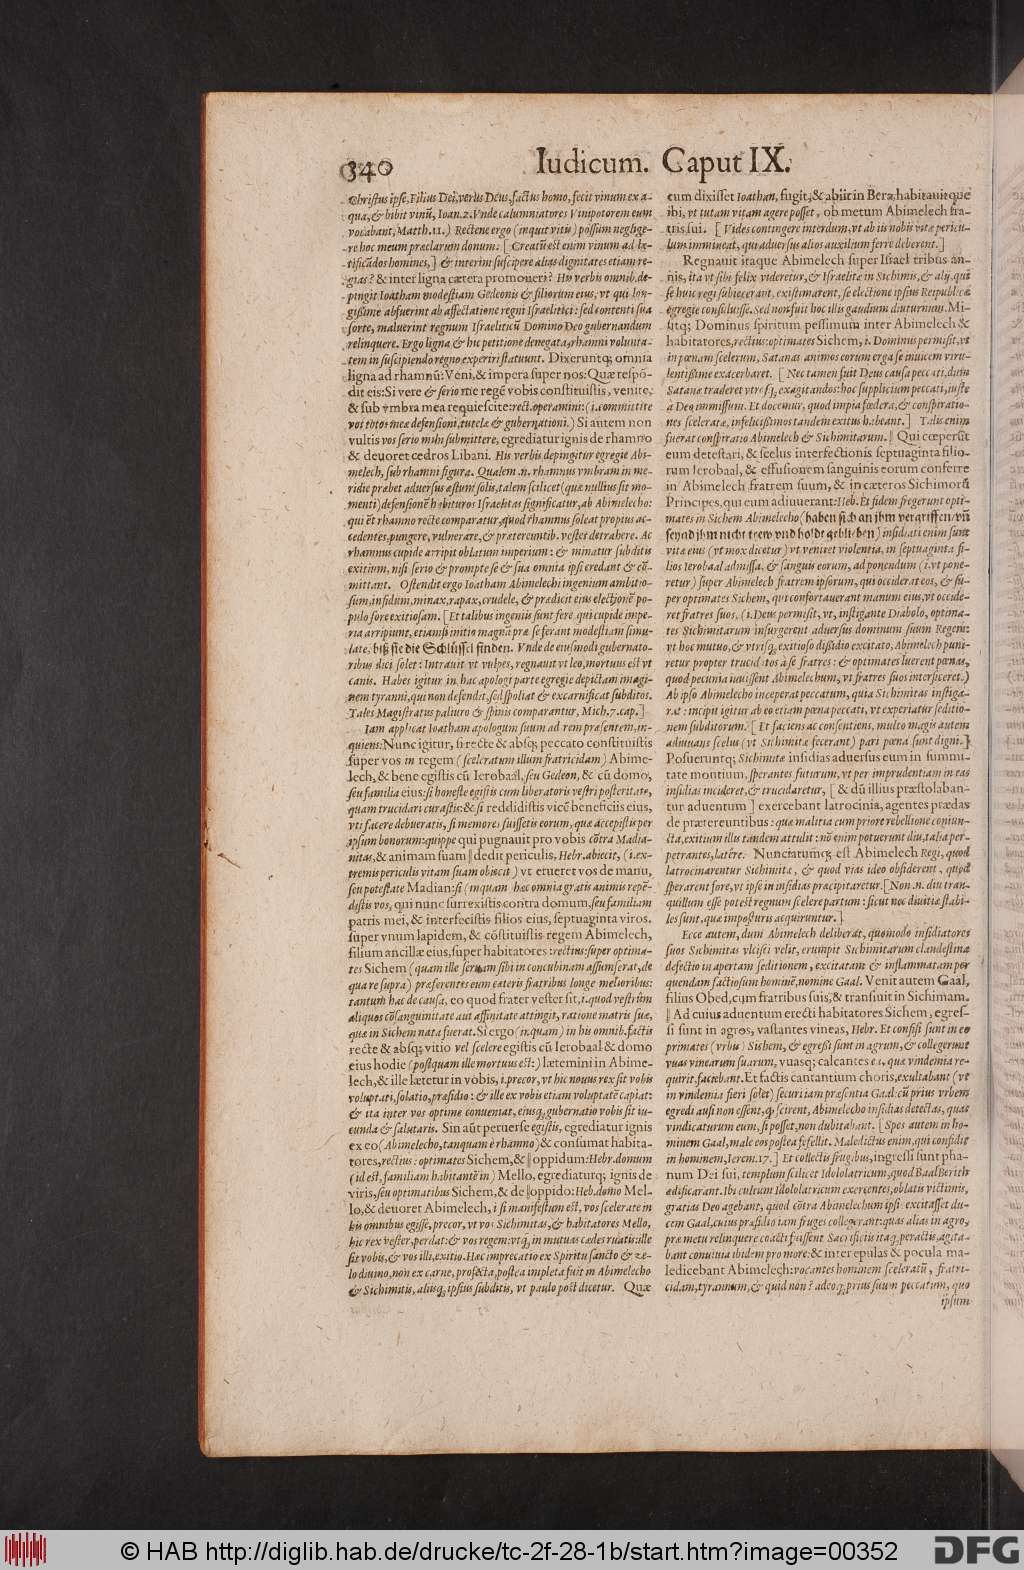 340
Iudicum. Caput IX.
Christus ipse, Filius Dei, verus Deus, factus homo, fecit vinum ex a-
qua, & bibit vinū, Ioan. 2. Vnde calumniatores Vinipotorem eum
vocabant, Matth. 11.) Rectene ergo (inquit vitis) possum neglige-
re hoc meum præclarum donum: [Creatū est enim vinum ad læ-
tificādos homines,] & interim suscipere alias dignitates etiam re-
gias? & inter ligna cætera promoueri? His verbis omnib. de-
pingit Ioatham modestiam Gedeonis & filiorum eius, vt qui lon-
gißime abfuerint ab affectatione regni Israelitici: sed contenti sua
sorte, maluerint regnum Israeliticū Domino Deo gubernandum
relinquere. Ergo ligna & hic petitione denegata, rhamni volunta-
tem in suscipiendo regno experiri statuunt. Dixeruntq; omnia
ligna ad rhamnū: Veni, & impera super nos: Quæ respō-
dit eis: Si vere & serio me regē vobis constituistis, venite,
& sub vmbra mea requiescite: rect. operamini: (i. committite
vos totos meæ defensioni, tutelæ & gubernationi.) Si autem non
vultis vos serio mihi submittere, egrediatur ignis de rhamno
& deuoret cedros Libani. His verbis depingitur egregie Abi-
melech, sub rhamni figura. Qualem .n. rhamnus vmbram in me-
ridie præbet aduersus æstum solis, talem scilicet (quæ nullius sit mo-
menti) defensionē habituros Israelitas significatur, ab Abimelecho:
qui ēt rhamno recte comparatur, quod rhamnus soleat propius ac-
cedentes, pungere, vulnerare, & prætereuntib. vestes detrahere. Ac
rhamnus cupide arripit oblatum imperium: & minatur subditis
exitium, nisi serio & prompte se & sua omnia ipsi credant & cō-
mittant. Ostendit ergo Ioatham Abimelechi ingenium ambitio-
sum, infidum, minax, rapax, crudele, & prædicit eius electionē po-
pulo fore exitiosam. [Et talibus ingeniis sunt fere, qui cupide impe-
ria arripiunt, etiamsi initio magnā præ se ferant modestiam simu-
late, biß sie die Schlüssel finden. Vnde de eiusmodi gubernato-
ribus dici solet: Intrauit vt vulpes, regnauit vt leo, mortuus est vt
canis. Habes igitur in hac apologi parte egregie depictam imagi-
nem tyranni, qui non defendit, sed spoliat & excarnificat subditos.
Tales Magistratus paliuro & spinis comparantur, Mich. 7. cap.]
Iam applicat Ioatham apologum suum ad rem præsentem, in-
quiens: Nunc igitur, si recte & absq; peccato constituistis
super vos in regem (sceleratum illum fratricidam) Abime-
lech, & bene egistis cū Ierobaal, seu Gedeon, & cū domo,
seu familia eius: si honeste egistis cum liberatoris vestri posteritate,
quam trucidari curastis: & si reddidistis vicē beneficiis eius,
vti facere debueratis, si memores fuissetis eorum, quæ accepistis per
ipsum bonorum: quippe qui pugnauit pro vobis cōtra Madia-
nitas, & animam suam ‖ dedit periculis, Hebr. abiecit, (i. ex-
tremis periculis vitam suam obiecit) vt erueret vos de manu,
seu potestate Madian: si (inquam hæc omnia gratis animis repē-
distis vos, qui nunc surrexistis contra domum, seu familiam
patris mei, & interfecistis filios eius, septuaginta viros,
super vnum lapidem, & cōstituistis regem Abimelech,
filium ancillæ eius, super habitatores: rectius: super optima-
tes Sichem (quam ille seruam sibi in concubinam assumserat, de
qua re supra) præferentes eum cæteris fratribus longe melioribus:
tantum hac de causa, eo quod frater vester sit, i. quod vestrūm
aliquos cōsanguinitate aut affinitate attingit, ratione matris suæ,
quæ in Sichem nata fuerat. Si ergo (inquam) in his omnib. factis
recte & absq; vitio vel scelere egistis cū Ierobaal & domo
eius hodie (postquam ille mortuus est:) lætemini in Abime-
lech, & ille lætetur in vobis, i. precor, vt hic nouus rex sit vobis
voluptati, solatio, præsidio: & ille ex vobis etiam voluptatē capiat:
& ita inter vos optime conueniat, eiusq; gubernatio vobis sit iu-
cunda & salutaris. Sin aūt peruerse egistis, egrediatur ignis
ex eo (Abimelecho, tanquam è rhamno) & consumat habita-
tores, rectius: optimates Sichem, & ‖ oppidum: Hebr. domum
(id est, familiam habitantē in) Mello, egrediaturq; ignis de
viris, seu optimatibus Sichem, & de ‖ oppido: Heb. domo Mel-
lo, & deuoret Abimelech, i. si manifestum est, vos scelerate in
his omnibus egisse, precor, vt vos Sichimitas, & habitatores Mello,
hic rex vester, perdat: & vos regem: vtq; in mutuas cædes ruatis: ille
sit vobis, & vos illi, exitio. Hæc imprecatio ex Spiritu sancto & ze-
lo diuino, non ex carne, profecta, postea impleta fuit in Abimelecho
& Sichimitis, aliisq; ipsius subditis, vt paulo post dicetur. Quæ
cum dixisset Ioathan, fugit, & abiit in Bera, habitauitque
ibi, vt tutam vitam agere posset, ob metum Abimelech fra-
tris sui. [Vides contingere interdum, vt ab iis nobis vitæ pericu-
lum immineat, qui aduersus alios auxilium ferre deberent.]
Regnauit itaque Abimelech super Israel tribus an-
nis, ita vt sibi felix videretur, & Israelitæ in Sichimis, & alij, qui
se huic regi subiecerant, existimarent, se electione ipsius Reipublicæ
egregie consuluisse. Sed non fuit hoc illis gaudium diuturnum. Mi-
sitq; Dominus spiritum pessimum inter Abimelech &
habitatores, rectius: optimates Sichem, i. Dominus permisit, vt
in pœnam scelerum, Satanas animos eorum erga se inuicem viru-
lentißime exacerbaret. [Nec tamen fuit Deus causa peccati, dum
Satanæ traderet vtrosq; exagitandos: hoc supplicium peccati, iuste
a Deo immissum. Et docemur, quod impia fœdera, & conspiratio-
nes sceleratæ, infelicißimos tandem exitus habeant.] Talis enim
fuerat conspiratio Abimelech & Sichimitarum. ‖ Qui cœperūt
eum detestari, & scelus interfectionis septuaginta filio-
rum Ierobaal, & effusionem sanguinis eorum conferre
in Abimelech fratrem suum, & in cæteros Sichimorū
Principes, qui eum adiuuerant: Heb. Et fidem fregerunt opti-
mates in Sichem Abimelecho (haben sich an jhm vergriffen/ vñ
seynd jhm nicht trew vnd holdt geblieben) insidiati enim sunt
vitæ eius (vt mox dicetur) vt veniret violentia, in septuaginta fi-
lios Ierobaal admissa, & sanguis eorum, ad ponendum (i. vt pone-
retur) super Abimelech fratrem ipsorum, qui occiderat eos, & su-
per optimates Sichem, qui confortauerant manum eius, vt occide-
ret fratres suos, (i. Deus permisit, vt, instigante Diabolo, optima-
tes Sichimitarum insurgerent aduersus dominum suum Regem:
vt hoc mutuo, & vtrisq; exitioso dißidio excitato, Abimelech puni-
retur propter trucidatos à se fratres: & optimates luerent pœnas,
quod pecunia iuuissent Abimelechum, vt fratres suos interficeret.)
Ab ipso Abimelecho inceperat peccatum, quia Sichimitas instiga-
rat: incipit igitur ab eo etiam pœna peccati, vt experiatur seditio-
nem subditorum. [Et faciens ac consentiens, multo magis autem
adiuuans scelus (vt Sichimitæ fecerant) pari pœna sunt digni.]
Posueruntq; Sichimitæ insidias aduersus eum in summi-
tate montium, sperantes futurum, vt per imprudentiam in eas
insidias incideret, & trucidaretur, [& dū illius præstolaban-
tur aduentum] exercebant latrocinia, agentes prædas
de prætereuntibus: quæ malitia cum priore rebellione coniun-
cta, exitium illis tandem attulit: nō enim potuerunt diu, talia per-
petrantes, latēre. Nunciatumq; est Abimelech Regi, quod
latrocinarentur Sichimitæ, & quod vias ideo obsiderent, quod
sperarent fore, vt ipse in insidias præcipitaretur. [Non .n. diu tran-
quillum esse potest regnum scelere partum: sicut nec diuitiæ stabi-
les sunt, quæ imposturis acquiruntur.]
Ecce autem, dum Abimelech deliberat, quomodo insidiatores
suos Sichimitas vlcisci velit, erumpit Sichimitarum clandestina
defectio in apertam seditionem, excitatam & inflammatam per
quendam factiosum hominē, nomine Gaal. Venit autem Gaal,
filius Obed, cum fratribus suis, & transiuit in Sichimam.
‖ Ad cuius aduentum erecti habitatores Sichem, egres-
si sunt in agros, vastantes vineas, Hebr. Et confisi sunt in eo
primates (vrbis) Sishem, & egressi sunt in agrum, & collegerunt
vuas vinearum suarum, vuasq; calcantes ea, quæ vindemia re-
quirit, faciebant. Et factis cantantium choris, exultabant (vt
in vindemia fieri solet) securi iam præsentia Gaal: cū prius vrbem
egredi ausi non essent, q; scirent, Abimelecho insidias detectas, quas
vindicaturum eum, si posset, non dubitabant. [Spes autem in ho-
minem Gaal, male eos postea fefellit. Maledictus enim, qui confidit
in hominem, Ierem. 17.] Et collectis frugibus, ingressi sunt pha-
num Dei sui, templum scilicet Idololatricum, quod Baal Berith
ædificarant. Ibi cultum Idololatricum exercentes, oblatis victimis,
gratias Deo agebant, quod cōtra Abimelechum ipsi excitasset du-
cem Gaal, cuius præsidio iam fruges collegerant: quas alias in agro,
præ metu relinquere coacti fuissent. Sacrificiis itaq; peractis, agita-
bant conuiuia ibidem pro more: & inter epulas & pocula ma-
ledicebant Abimelech: vocantes hominem sceleratū, fratri-
cidam, tyrannum, & quid non? adeoq; prius suum peccatum, quo
ipsum
© HAB http://diglib.hab.de/drucke/tc-2f-28-1b/start.htm?image=00352
DFG